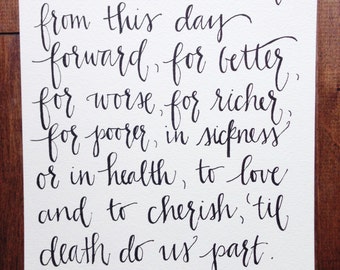 from this day
forward, for better,
for worse, for richer,
for poorer, in sickness
or in health, to love
and to cherish, 'til
death do us part.